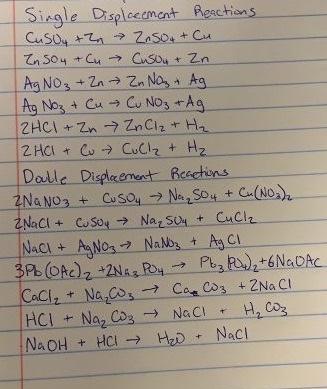 Single Displacement Reactions
CuSO₄ + Zn → ZnSO₄ + Cu
ZnSO₄ + Cu → CuSO₄ + Zn
AgNO₃ + Zn → ZnNO₃ + Ag
AgNO₃ + Cu → CuNO₃ + Ag
2HCl + Zn → ZnCl₂ + H₂
2HCl + Cu → CuCl₂ + H₂
Double Displacement Reactions
2NaNO₃ + CuSO₄ → Na₂SO₄ + Cu(NO₃)₂
2NaCl + CuSO₄ → Na₂SO₄ + CuCl₂
NaCl + AgNO₃ → NaNO₃ + AgCl
3Pb(OAc)₂ + 2Na₃PO₄ → Pb₃(PO₄)₂ + 6NaOAc
CaCl₂ + Na₂CO₃ → CaCO₃ + 2NaCl
HCl + Na₂CO₃ → NaCl + H₂CO₃
NaOH + HCl → H₂O + NaCl